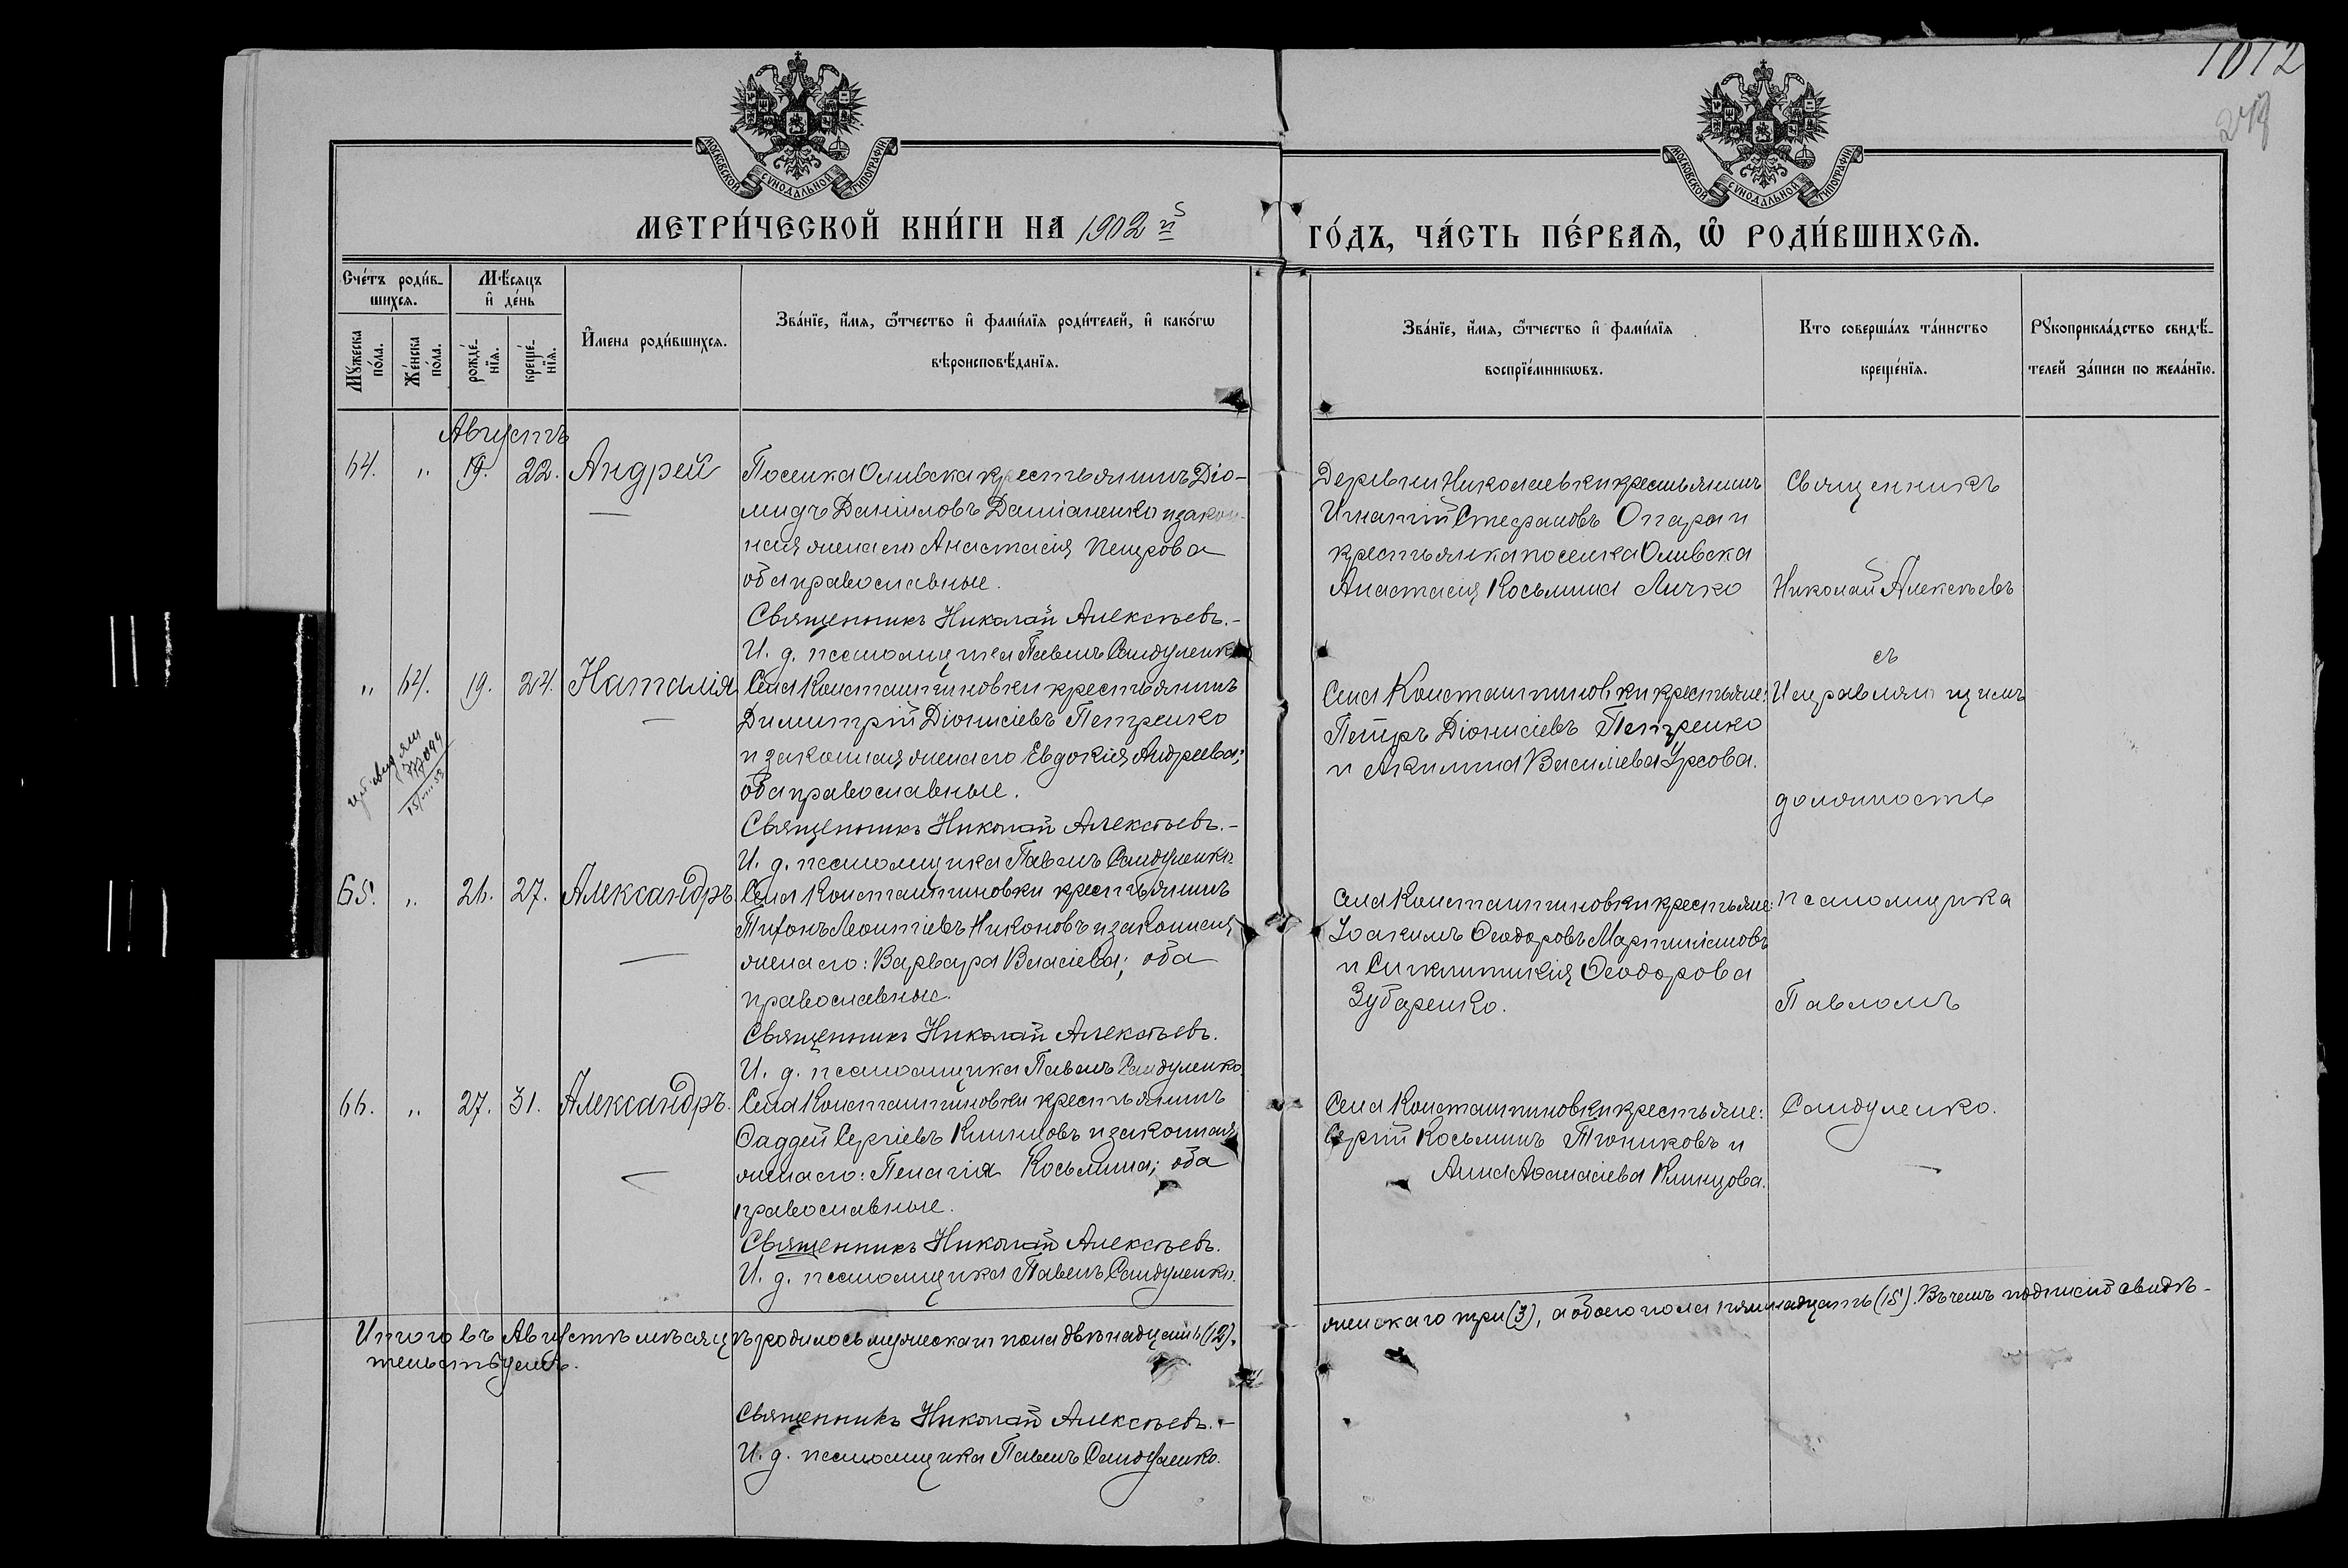 1012
МОСКОВСКОЙ СѴНОДАЛЬНОЙ ТИПОГРАФІИ
МОСКОВСКОЙ СѴНОДАЛЬНОЙ ТИПОГРАФІИ
МЕТРИ́ЧЕСКОЙ КНИ́ГИ НА 1902 й
ГО́ДЪ, ЧА́СТЬ ПЕ́РВАѦ, Ѡ҆ РОДИ́ВШИХСѦ.
Сче́тъ роди́в-
шихсѧ.
Мѣ́сѧцъ
и҆ де́нь
Мꙋ́жеска по́ла.
Же́нска по́ла.
рожде́-
нїѧ.
креще́-
нїѧ.
И҆мена роди́вшихсѧ.
Зва́нїе, и҆́мѧ, ѻ҆́тчество и҆ фами́лїѧ роди́телей, и҆ како́гѡ
вѣроисповѣ́данїѧ.
Зва́нїе, и҆́мѧ, ѻ҆́тчество и҆ фами́лїѧ
воспрїе́мникѡвъ.
Кто соверша́лъ та́инство
креще́нїѧ.
Рꙋкоприкла́дство свидѣ́-
телей за́писи по жела́нїю.
Августъ
64. „ 19. 22. Андрей
Поселка Ольвска крестьянинъ Діо-
мидъ Даніиловъ Даміаненко и закон-
ная жена его Анастасія Петрова
оба православные.
Священникъ Николай Алексѣевъ.-
И. д. псаломщика Павелъ Сандуленко
Деревни Николаевки крестьянинъ
Игнатій Стефановъ Опара и
крестьянка поселка Ольвска
Анастасія Косьмина Личко
Священникъ
Николай Алексѣевъ
„ 64. 19. 24. Наталія
Села Константиновки крестьянинъ
Димитрій Діонисіевъ Петренко
и законная жена его Евдокія Андреева;
оба православные.
Священникъ Николай Алексѣевъ.-
И. д. псаломщика Павелъ Сандуленко
Села Константиновки крестьяне:
Петръ Діонисіевъ Петренко
и Акилина Василіева Урсова.
съ
Исправляющимъ
должность
65. „ 26. 27. Александръ.
Села Константиновки крестьянинъ
Тихонъ Леонтіевъ Никоновъ и законная
жена его: Варвара Власіева; оба
православные.
Священникъ Николай Алексѣевъ.
И. д. псаломщика Павелъ Сандуленко.
Села Константиновки крестьяне:
Іоакимъ Ѳеодоровъ Мартиніановъ
и Синклитикія Ѳеодорова
Зубаренко.
псаломщика
Павломъ
66. „ 27. 31. Александръ.
Села Константиновки крестьянинъ
Ѳаддей Сергіевъ Клинцовъ и законная
жена его: Пелагія Косьмина; оба
православные.
Священникъ Николай Алексѣевъ.
И. д. псаломщика Павелъ Сандуленко.
Села Константиновки крестьяне:
Сергій Косьминъ Тюниковъ и
Анна Аѳанасіева Клинцова.
Сандуленко.
Итого въ Августѣ мѣсяцѣ родилось мужескаго пола двѣнадцать (12),
женскаго три (3), а обоего пола пятнадцать (15). Въ чемъ подписью свидѣ-
тельствуемъ.
Священникъ Николай Алексѣевъ.-
И. д. псаломщика Павелъ Сандуленко.